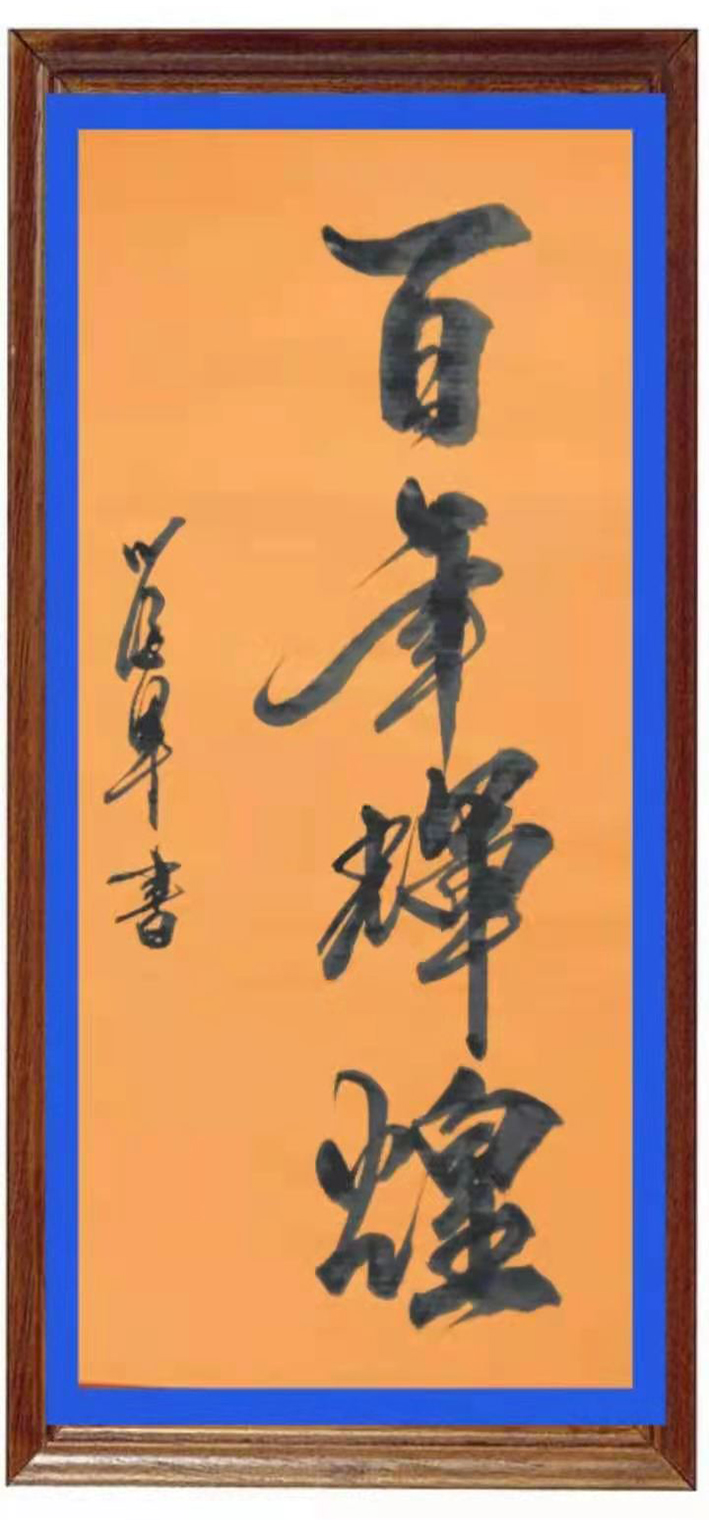 百年輝煌
書